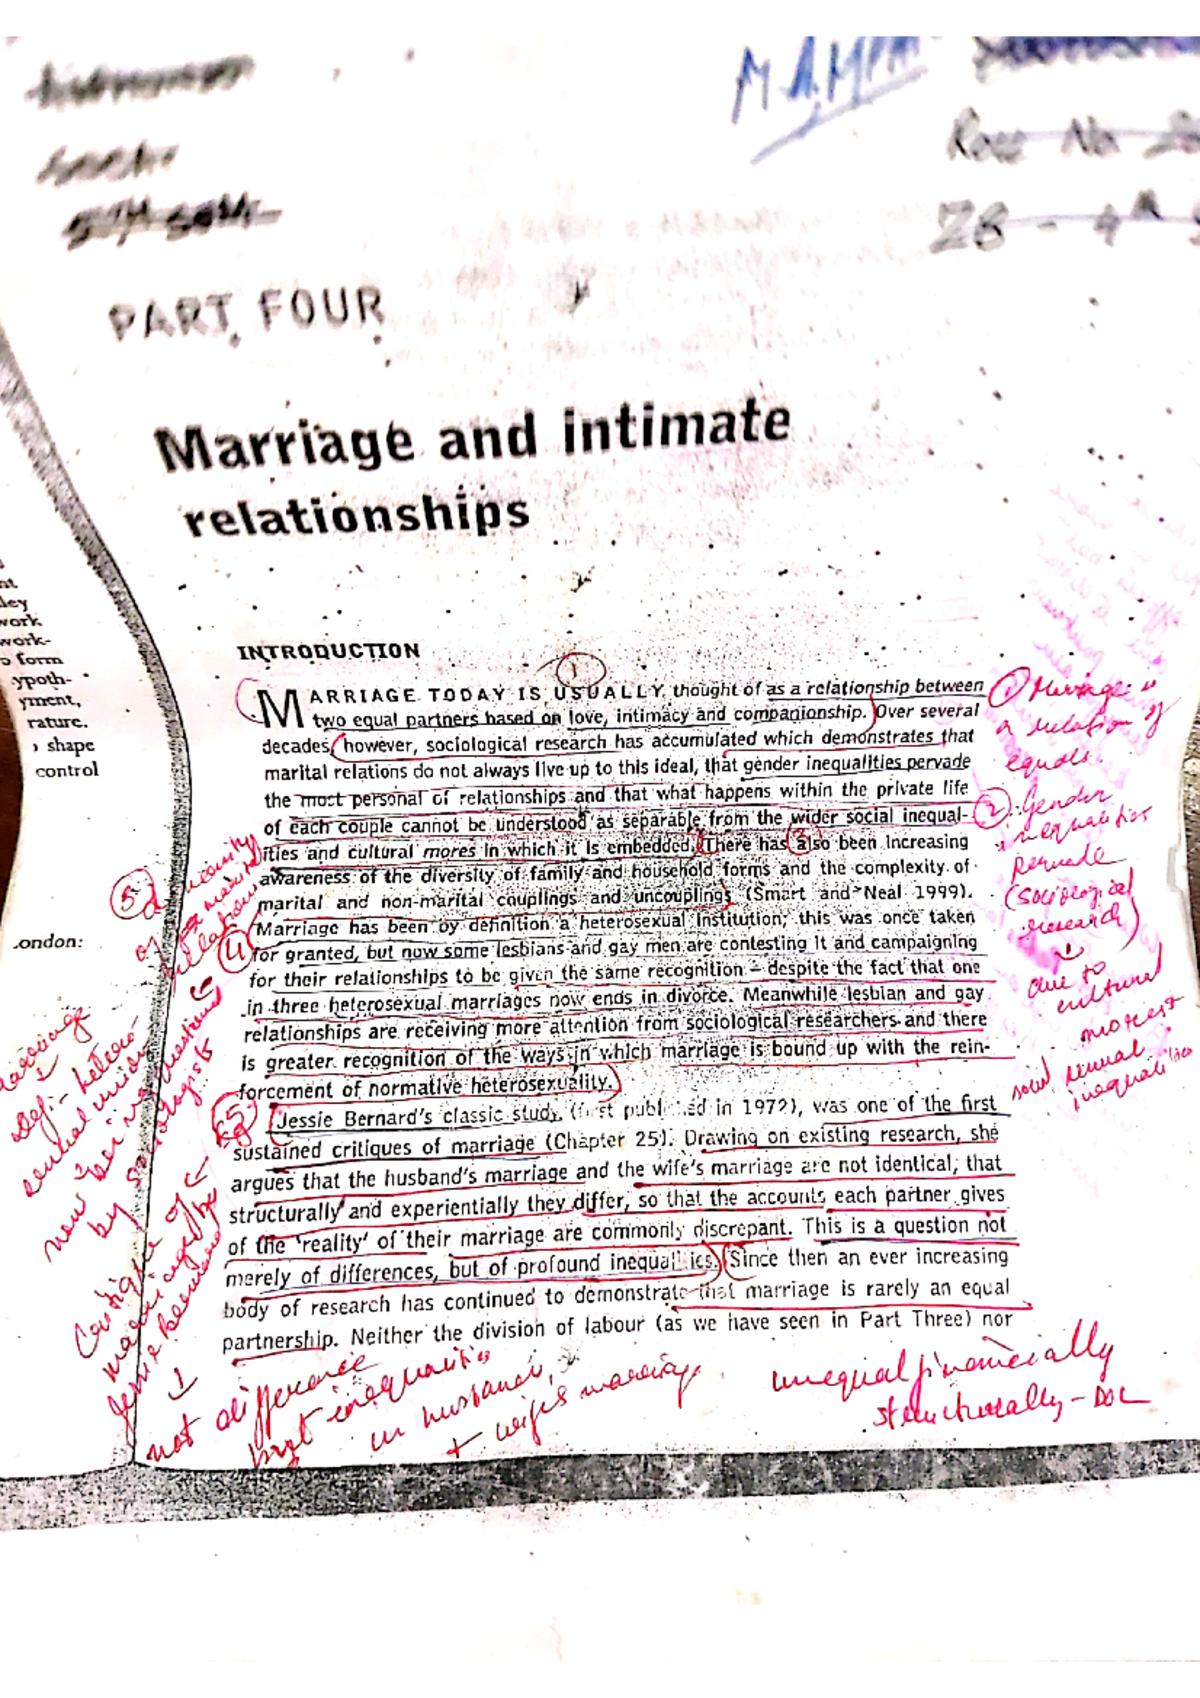 MAMPM
Row No
28 - 4
5TH
PART FOUR
Marriage and intimate
relationships
INTRODUCTION
1
MARRIAGE TODAY IS USUALLY thought of as a relationship between
two equal partners based on love, intimacy and companionship. Over several
decades, however, sociological research has accumulated which demonstrates that
marital relations do not always live up to this ideal, that gender inequalities pervade
the most personal of relationships and that what happens within the private life
of each couple cannot be understood as separable from the wider social inequal-
ities and cultural mores in which it is embedded. There has also been increasing
awareness of the diversity of family and household forms and the complexity of
marital and non-marital couplings and uncouplings (Smart and Neal 1999).
Marriage has been by definition a heterosexual institution; this was once taken
for granted, but now some lesbians and gay men are contesting it and campaigning
for their relationships to be given the same recognition – despite the fact that one
in three heterosexual marriages now ends in divorce. Meanwhile lesbian and gay
relationships are receiving more attention from sociological researchers and there
is greater recognition of the ways in which marriage is bound up with the rein-
forcement of normative heterosexuality.
Jessie Bernard's classic study, (first published in 1972), was one of the first
sustained critiques of marriage (Chapter 25). Drawing on existing research, she
argues that the husband's marriage and the wife's marriage are not identical; that
structurally and experientially they differ, so that the accounts each partner gives
of the 'reality' of their marriage are commonly discrepant. This is a question not
merely of differences, but of profound inequalities. Since then an ever increasing
body of research has continued to demonstrate that marriage is rarely an equal
partnership. Neither the division of labour (as we have seen in Part Three) nor
1 Marriage is
a relation of
equals.
2. Gender
inequalities
pervade
(sociological
research)
due to
cultural
mores +
social
inequalities
4
5
marriage
def:- hetero
sexual union
now being questioned
by sociologists
Critique of
marriage by
Jessie Bernard
not difference
but inequalities
in husband's
+ wife's marriage
unequal financially
structurally – DOL
ley
work
work-
form
ypoth-
yment,
rature.
shape
control
ondon: